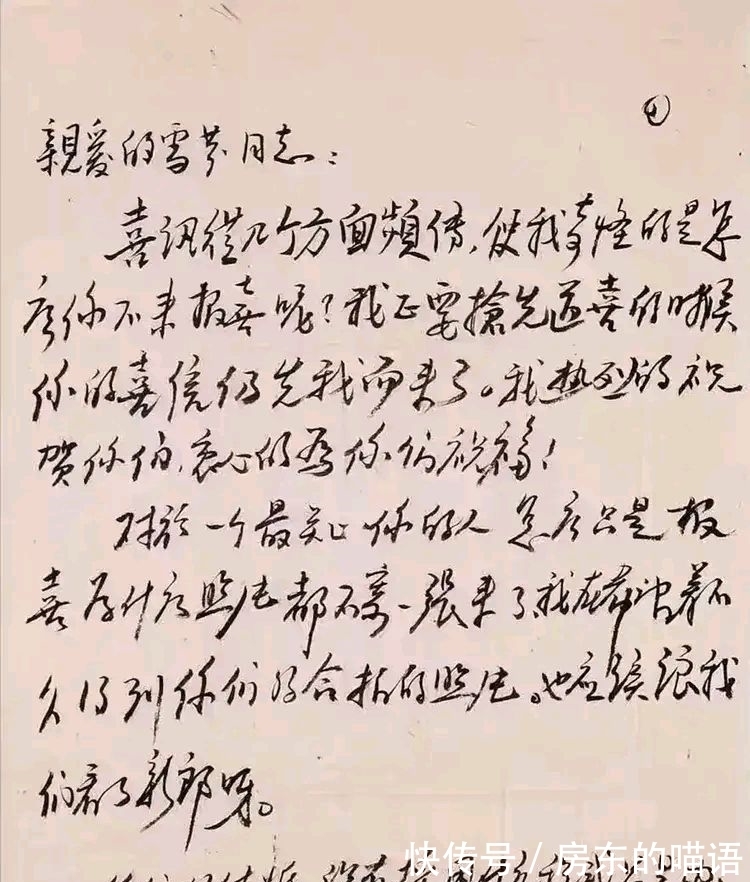 ④
親爱的雪芬同志：
喜訊從几个方面頻傳，使我奇怪的是怎
么你不来报喜呢？我正要搶先道喜的时候
你的喜信仍先我而来了。我热烈的祝
贺你们，衷心的為你们祝福！
对於一个最关心你的人怎么只是报
喜為什么照片都不寄一張来了，我在希望着不
久得到你们的合拍的照片。也应該讓我
们看了新郎呀。
快传号/房东的喵语